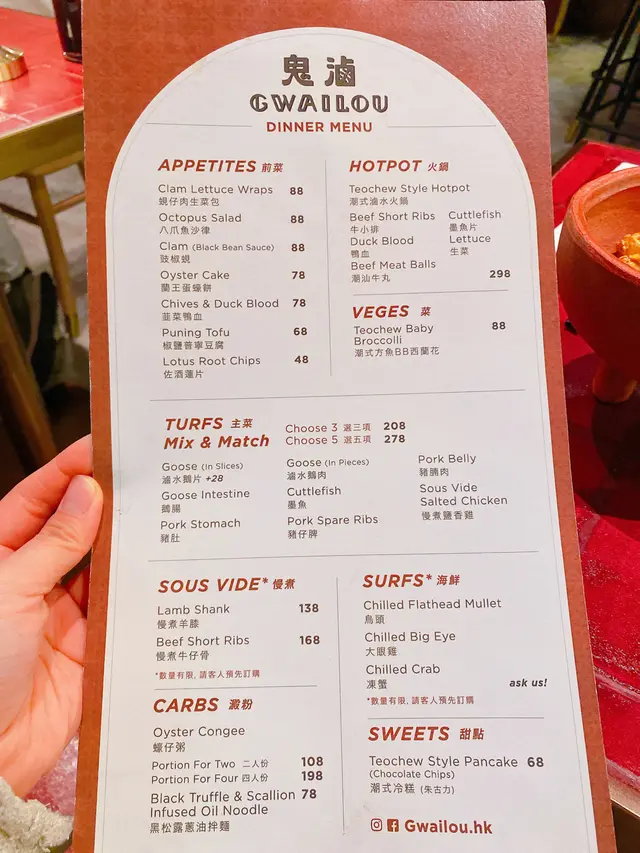 鬼滷
GWAILOU
DINNER MENU
APPETITES 前菜
Clam Lettuce Wraps 88
蜆仔肉生菜包
Octopus Salad 88
八爪魚沙律
Clam (Black Bean Sauce) 88
豉椒蜆
Oyster Cake 78
蘭王蛋蠔餅
Chives & Duck Blood 78
韮菜鴨血
Puning Tofu 68
椒鹽普寧豆腐
Lotus Root Chips 48
佐酒蓮片
HOTPOT 火鍋
Teochew Style Hotpot
潮式滷水火鍋
Beef Short Ribs Cuttlefish
牛小排 墨魚片
Duck Blood Lettuce
鴨血 生菜
Beef Meat Balls 298
潮汕牛丸
VEGES 菜
Teochew Baby 88
Broccolli
潮式方魚BB西蘭花
TURFS 主菜
Mix & Match
Choose 3 選三項 208
Choose 5 選五項 278
Goose (In Slices)
滷水鵝片 +28
Goose Intestine
鵝腸
Pork Stomach
豬肚
Goose (In Pieces)
滷水鵝肉
Cuttlefish
墨魚
Pork Spare Ribs
豬仔脾
Pork Belly
豬腩肉
Sous Vide
Salted Chicken
慢煮鹽香雞
SOUS VIDE* 慢煮
Lamb Shank 138
慢煮羊膝
Beef Short Ribs 168
慢煮牛仔骨
*數量有限, 請客人預先訂購
CARBS 澱粉
Oyster Congee
蠔仔粥
Portion For Two 二人份 108
Portion For Four 四人份 198
Black Truffle & Scallion 78
Infused Oil Noodle
黑松露蔥油拌麵
SURFS* 海鮮
Chilled Flathead Mullet
烏頭
Chilled Big Eye
大眼雞
Chilled Crab
凍蟹 ask us!
*數量有限, 請客人預先訂購
SWEETS 甜點
Teochew Style Pancake 68
(Chocolate Chips)
潮式冷糕 (朱古力)
Gwailou.hk